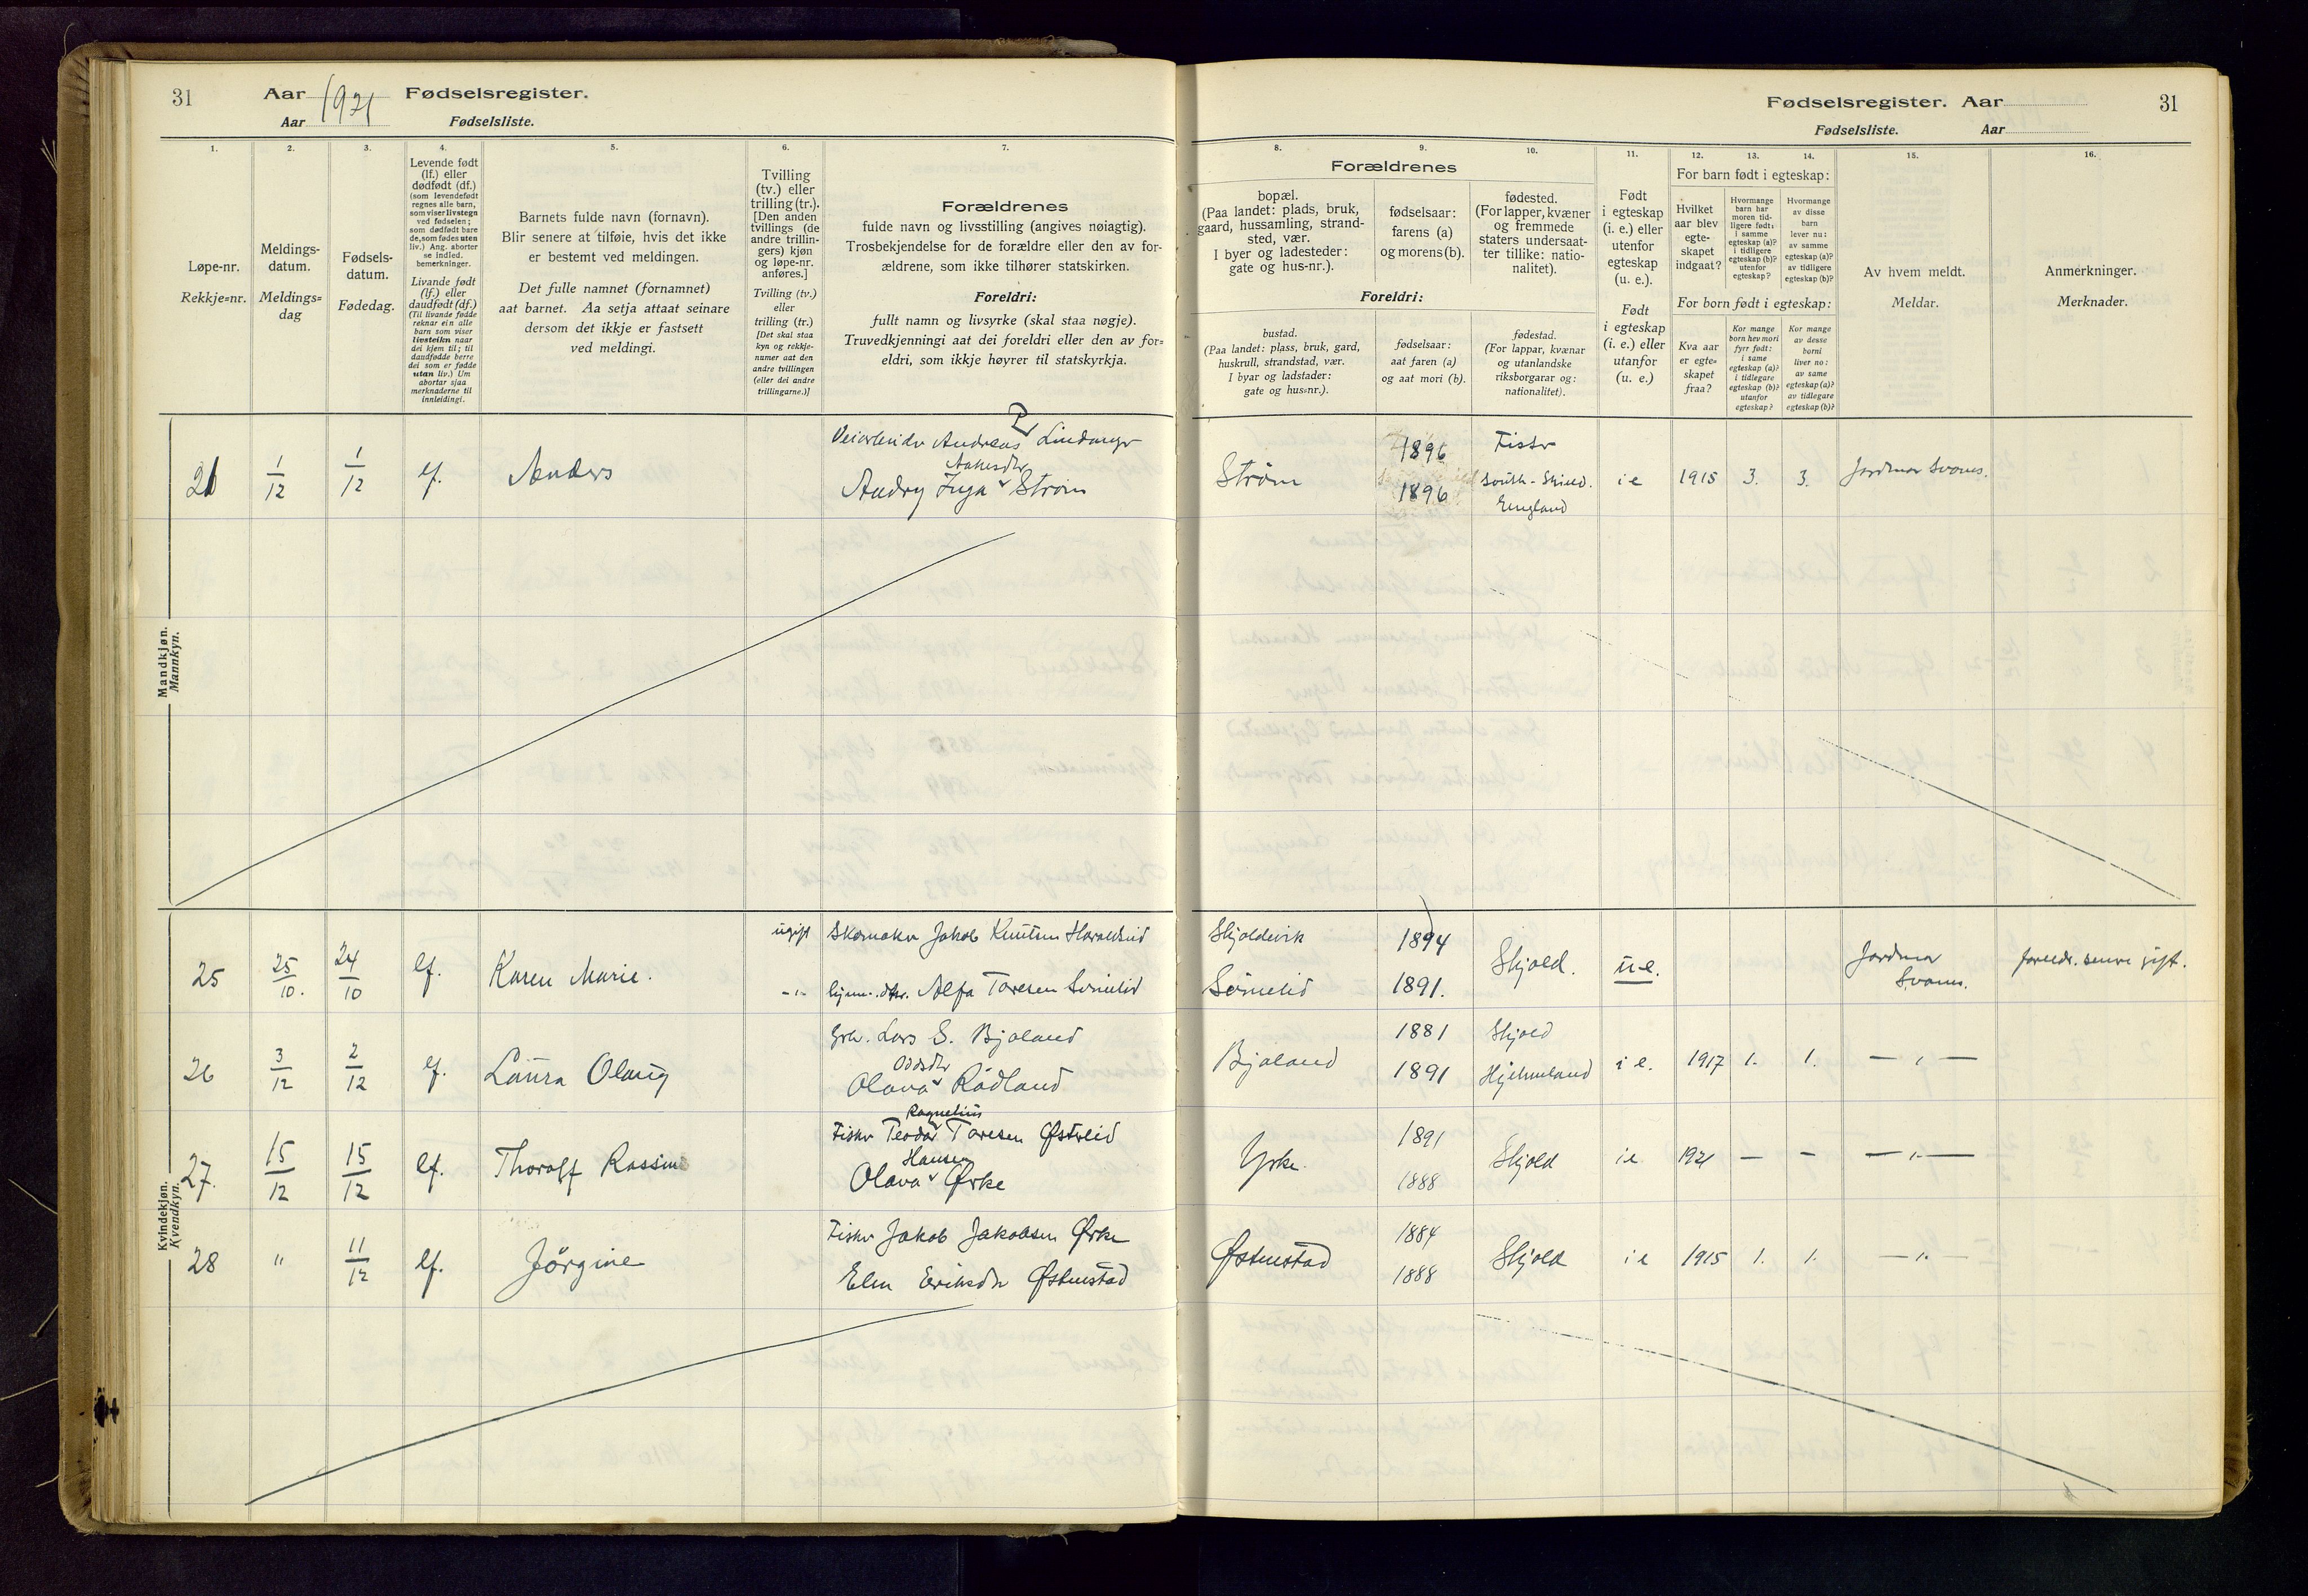 31
Aar 1921 Fødselsregister.
Aar Fødselsliste.
1.
2.
3.
4.
5.
6.
7.
Løpe-nr.
Rekkje-nr.
Meldings-
datum.
Meldings-
dag
Fødsels-
datum.
Fødedag.
Levende født
(lf.) eller
dødfødt (df.)
(som levendefødt
regnes alle barn,
som viser livstegn
ved fødselen;
som dødfødt bare
de, som fødes uten
liv.) Ang. aborter
se indled.
bemerkninger.
Livande født
(lf.) eller
daudfødt (df.)
(Til livande fødde
reknar ein alle
barn som viser
livsteikn naar
dei kjem til; til
daudfødde berre
dei som er fødde
utan liv.) Um
abortar sjaa
merknaderne til
innleidingi.
Barnets fulde navn (fornavn).
Blir senere at tilføie, hvis det ikke
er bestemt ved meldingen.
Det fulle namnet (fornamnet)
aat barnet. Aa setja attaat seinare
dersom det ikkje er fastsett
ved meldingi.
Tvilling
(tv.) eller
trilling (tr.).
[Den anden
tvillings (de
andre trillin-
gers) kjøn
og løpe-nr.
anføres.]
Tvilling (tv.)
eller
trilling (tr.)
[Det skal staa
kyn og rekkje-
numer aat den
andre tvillingen
(eller dei andre
trillingarne.)]
Forældrenes
fulde navn og livsstilling (angives nøiagtig).
Trosbekjendelse for de forældre eller den av for-
ældrene, som ikke tilhører statskirken.
Foreldri:
fullt namn og livsyrke (skal staa nøgje).
Truvedkjenningi aat dei foreldri eller den av for-
eldri, som ikkje høyrer til statskyrkja.
Mandkjøn.
Mannkyn.
21 1/12 1/12 lf. Anders
Andreas Lindanger
Strøm
Kvindekjøn.
Kvendkyn.
25 25/10. 24/10 lf. Karen Marie.
ugift Skomaker Jakob Knutsen Haraldseid
-"- Alfa Toresen Sørnelid
26 3/12 2/12 lf. Laura Olaug
Grb. Lars S. Bjoland
Olava Rødland
27. 15/12 15/12 lf. Thoralf
Ragnelius
Fisker Teodor Toresen Østreid
Hansen
Olava Ørke
28 " 11/12 lf. Jørgine
Fisker Jakob Jakobsen Ørke
Elen Eriksdtr Østenstad
Fødselsregister. Aar 31
Fødselsliste. Aar
8.
9.
10.
11.
12.
13.
14.
15.
16.
Forældrenes
bopæl.
(Paa landet: plads, bruk,
gaard, hussamling, strand-
sted, vær.
I byer og ladesteder:
gate og hus-nr.).
fødselsaar:
farens (a)
og morens (b).
fødested.
(For lapper, kvæner
og fremmede
staters undersaat-
ter tillike: natio-
nalitet).
Foreldri:
bustad.
(Paa landet: plass, bruk, gard,
huskrull, strandstad, vær.
I byar og ladstader:
gate og hus-nr.).
fødselsaar:
aat faren (a)
og aat mori (b).
fødestad.
(For lappar, kvænar
og utanlandske
riksborgarar og:
nationalitet).
Født
i egteskap
(i. e.) eller
utenfor
egteskap
(u. e.).
Født
i egteskap
(i. e.) eller
utanfor
(u. e.)
For barn født i egteskap:
Hvilket
aar blev
egte-
skapet
indgaat?
Hvormange
barn har
moren tid-
ligere født:
i samme
egteskap (a)?
i tidligere
egteskap (b)?
utenfor
egteskap?
Hvormange
av disse
barn
lever nu:
av samme
egteskap (a)?
av tidligere
egteskap (b)?
For born født i egteskap:
Kva aar
er egte-
skapet
fraa?
Kor mange
born hev mori
fyrr født:
i same
egteskap (a)?
i tidlegare
egteskap (b)?
utanfor
egteskap?
Kor mange
av desse
borni
liver no:
av same
egteskap (a)?
av tidlegare
egteskap (b)?
Av hvem meldt.
Meldar.
Anmerkninger.
Merknader.
Strøm 1896 Fister
1896 South-Shield.
England
i e 1915 3. 3. Jordmor Svanes.
Skjoldevik 1894 Skjold. u.e. Jordmor
Svanes. foreldr. senere gift.
Sørnelid 1891.
Bjoland 1881 Skjold
1891 Hjelmeland i e. 1917 1. 1. — " —
Yrke. 1891
1888 Skjold i e 1921 — – — " —
Østenstad 1884
1888 Skjold i e 1915 1. 1. — " —